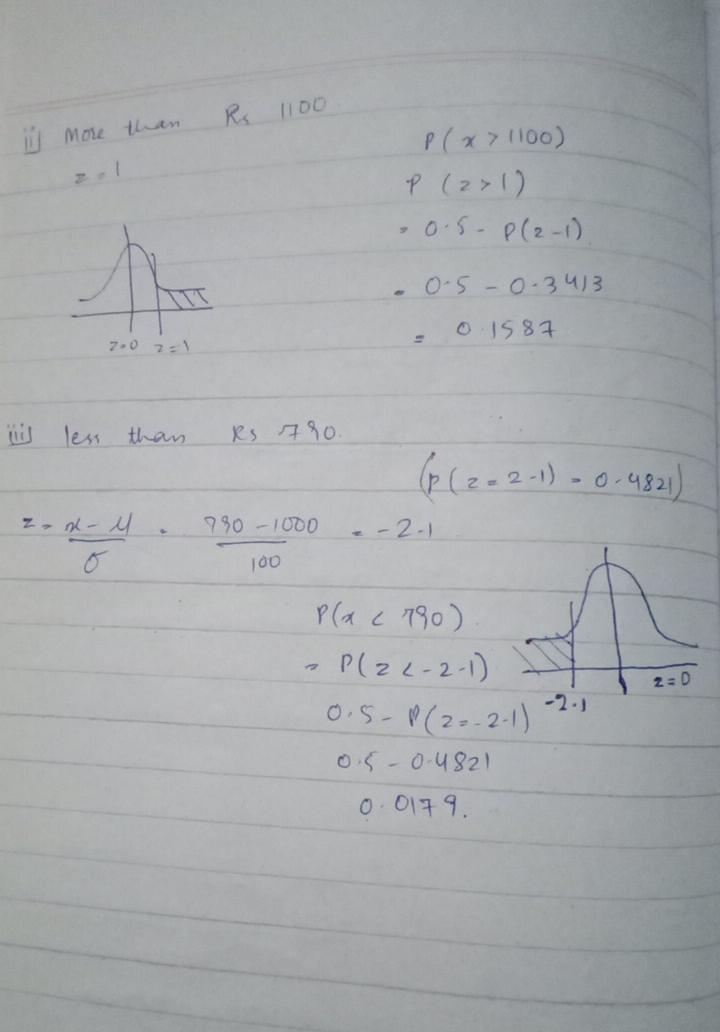 ii) More than Rs 1100
z = 1
P(x > 1100)
P (z > 1)
= 0.5 - P(z-1)
= 0.5 - 0.3413
= 0.1587
z=0 z=1
iii) less than Rs 790.
(P(z = 2-1) = 0.4821)
z = x - μ / σ = 790 - 1000 / 100 = -2.1
P(x < 790)
= P(z < -2-1)
0.5 - P(z = -2-1)
0.5 - 0.4821
0.0179.
-2.1 z=0